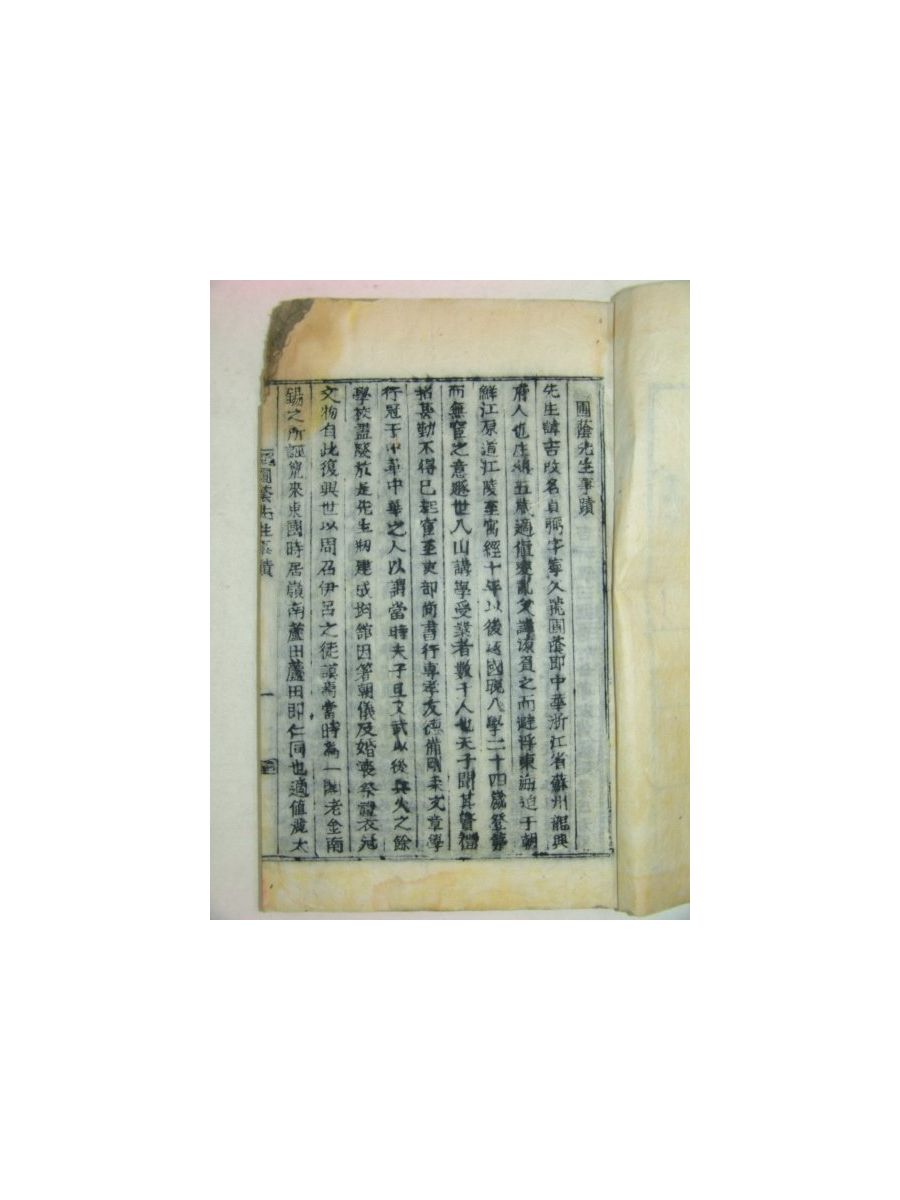 圃蔭先生事蹟
先生諱吉改名貞弼字寧久號圃蔭即中華浙江省蘇州龍興
府人也生纔五歲適値變亂父諱 負之而避浮東海迫于朝
鮮江原道江陵至寓經十年以後 國 入學二十四歲登第
而無宦之意遯世入山講學受業者數千人也天子聞其賢禮
招甚勤不得已起宦至吏部尙書行專孝友德備剛柔文章學
行冠于中華中華之人以謂當時夫子且文武以後兵火之餘
學校盡廢於是先生刱建成均館因著朝儀及婚喪祭禮衣冠
文物自此復興世以周召伊呂之徒 當時爲一國老金南
錫之所誣竄來東國時居嶺南蘆田蘆田即仁同也適値 太
圃蔭先生事蹟
一